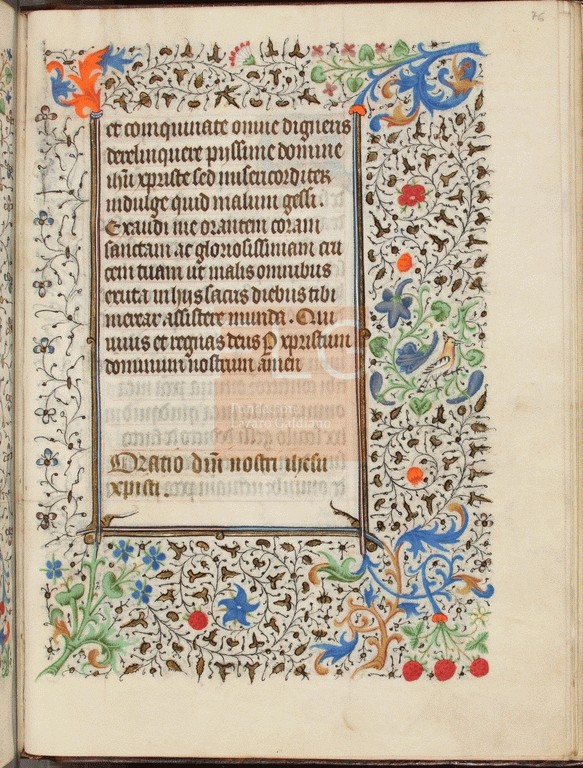 76
et coinquinate omine digneris
derelinquere pijssime domine
ihu xpriste sed misericorditer
indulge quid malum gessi.
Exaudi me orantem coram
sanctam ac gloriosissimam cru
cem tuam ut malis omnibus
exuta in hijs sacris diebus tibi
merear assistere munda. Qui
viuis et regnas deus P xpristum
dominum nostrum amen
Oratio dni nostri ihesu
xpisti.
Fundación
Lázaro Galdiano